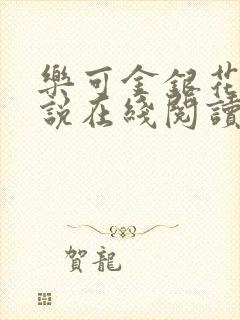 樂可金銀花
說在綫閱讀
賀龍